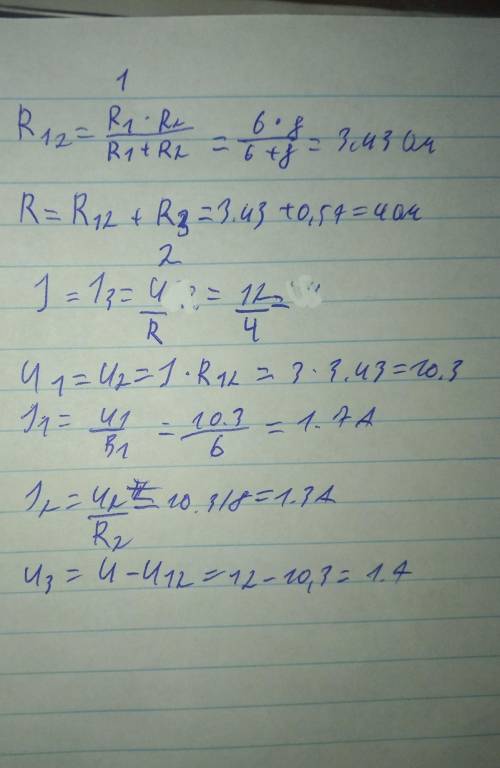 1
R12 = R1 · R2 / R1 + R2 = 6 · 8 / 6 + 8 = 3.43 Ом
R = R12 + R3 = 3.43 + 0,57 = 4 Ом
2
I = I3 = U / R = 12 / 4 =
U1 = U2 = I · R12 = 3 · 3.43 = 10.3
I1 = U1 / R1 = 10.3 / 6 = 1.7 A
I2 = U2 / R2 = 10.3/8 = 1.3 A
U3 = U - U12 = 12 - 10,3 = 1.7